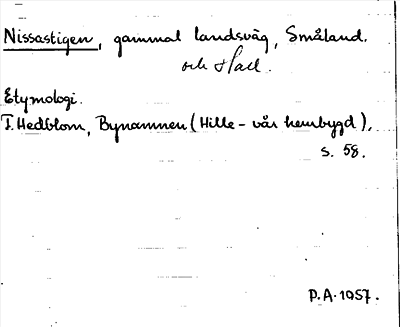 Nissastigen, gammal landsväg, Småland.
och Hall.
Etymologi.
F. Hedblom, Bynamnen (Hille - vår hembygd),
s. 58.
P.A. 1957.